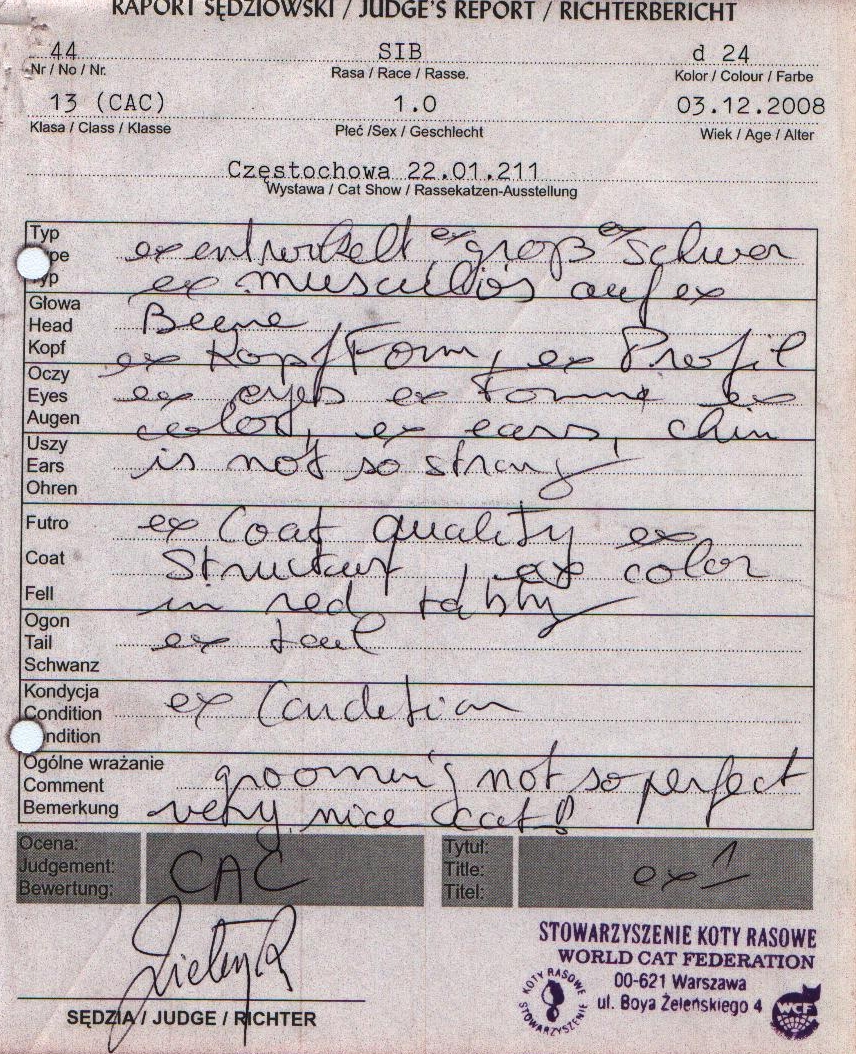 RAPORT SĘDZIOWSKI / JUDGE'S REPORT / RICHTERBERICHT
44 SIB d 24
Nr / No / Nr. Rasa / Race / Rasse. Kolor / Colour / Farbe
13 (CAC) 1.0 03.12.2008
Klasa / Class / Klasse Płeć /Sex / Geschlecht Wiek / Age / Alter
Częstochowa 22.01.211
Wystawa / Cat Show / Rassekatzen-Ausstellung
Typ
ex entwickelt ex groß ex schwer
Typ
ex musculös auf ex
Głowa
Head
Beene
Kopf
ex Kopf Form, ex Profil
Oczy
Eyes
ex eyes ex Forme ex
Augen
color, ex ears, chin
Uszy
Ears
is not so strong
Ohren
Futro
ex Coat quality ex
Coat
Structur, ex color
Fell
in red tabby
Ogon
Tail
ex tail
Schwanz
Kondycja
Condition
ex Condetion
ndition
Ogólne wrażanie
Comment
grooming not so perfect
Bemerkung
very nice cat!
Ocena:
Judgement:
Bewertung:
CAC
Tytuł:
Title:
Titel:
ex 1
SĘDZIA / JUDGE / RICHTER
STOWARZYSZENIE KOTY RASOWE
WORLD CAT FEDERATION
00-621 Warszawa
ul. Boya Żeleńskiego 4
KOTY RASOWE
STOWARZYSZENIE
WCF